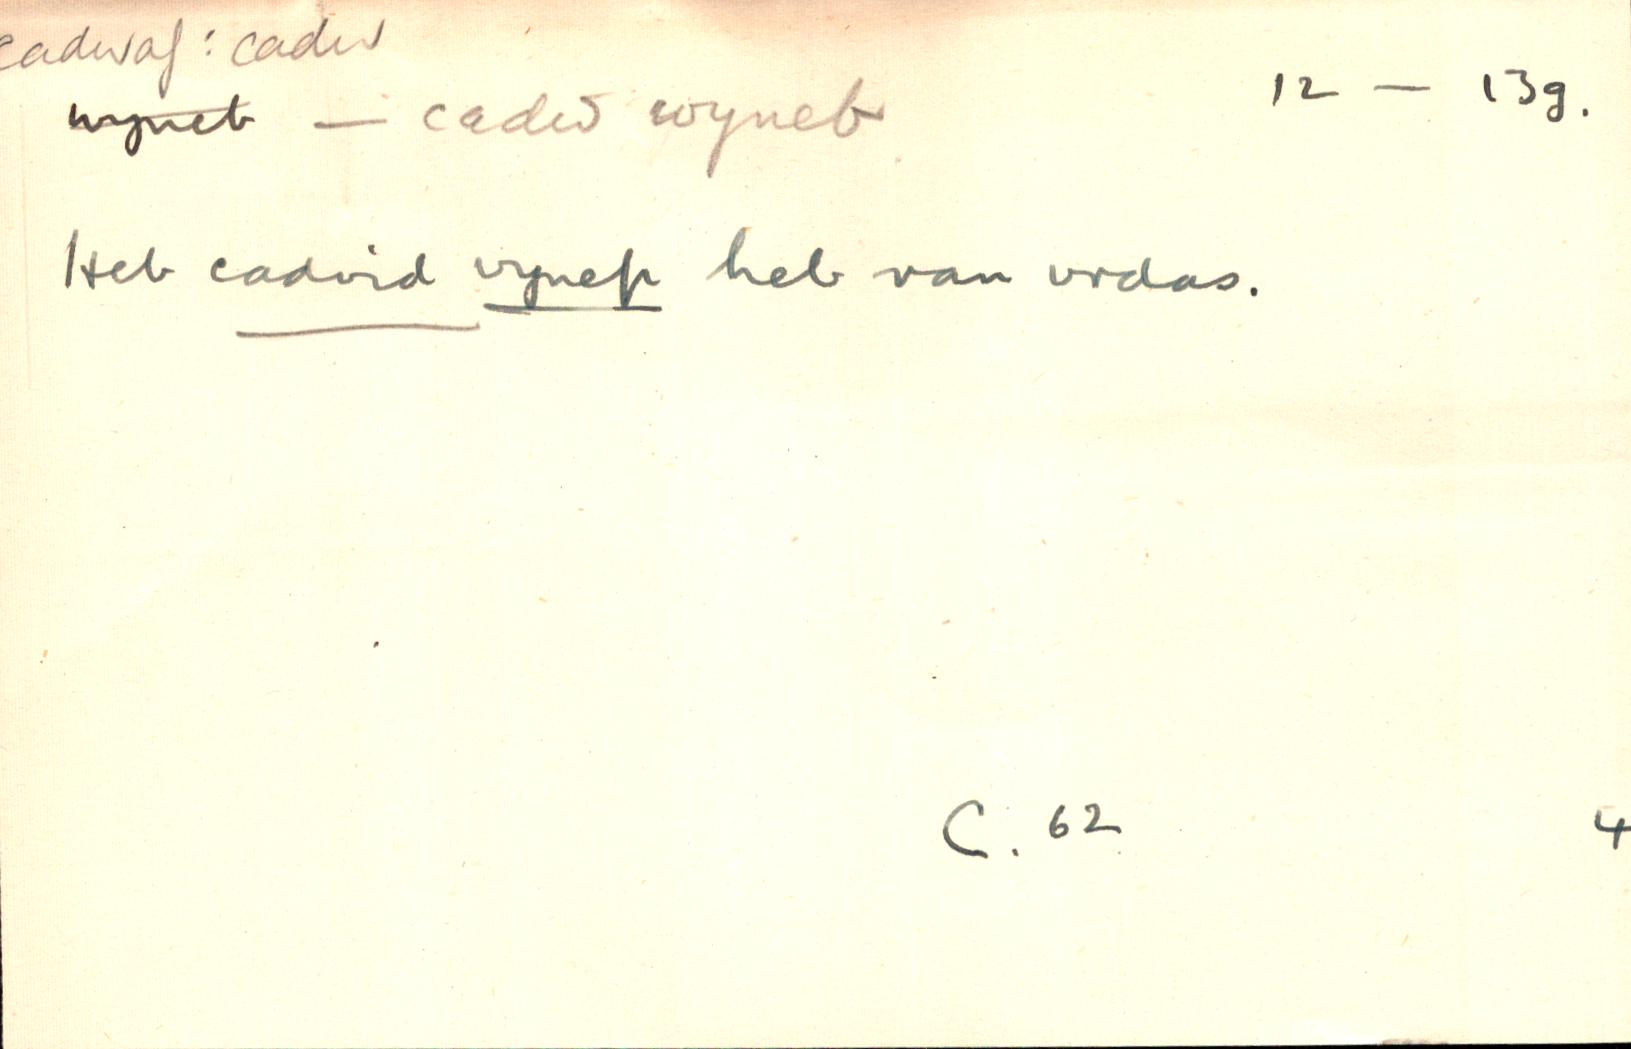 cadwaf: cadw
wyneb — cadw wyneb 12 — 13g.
Heb cadvid vynep heb van vrdas.
C. 62 4